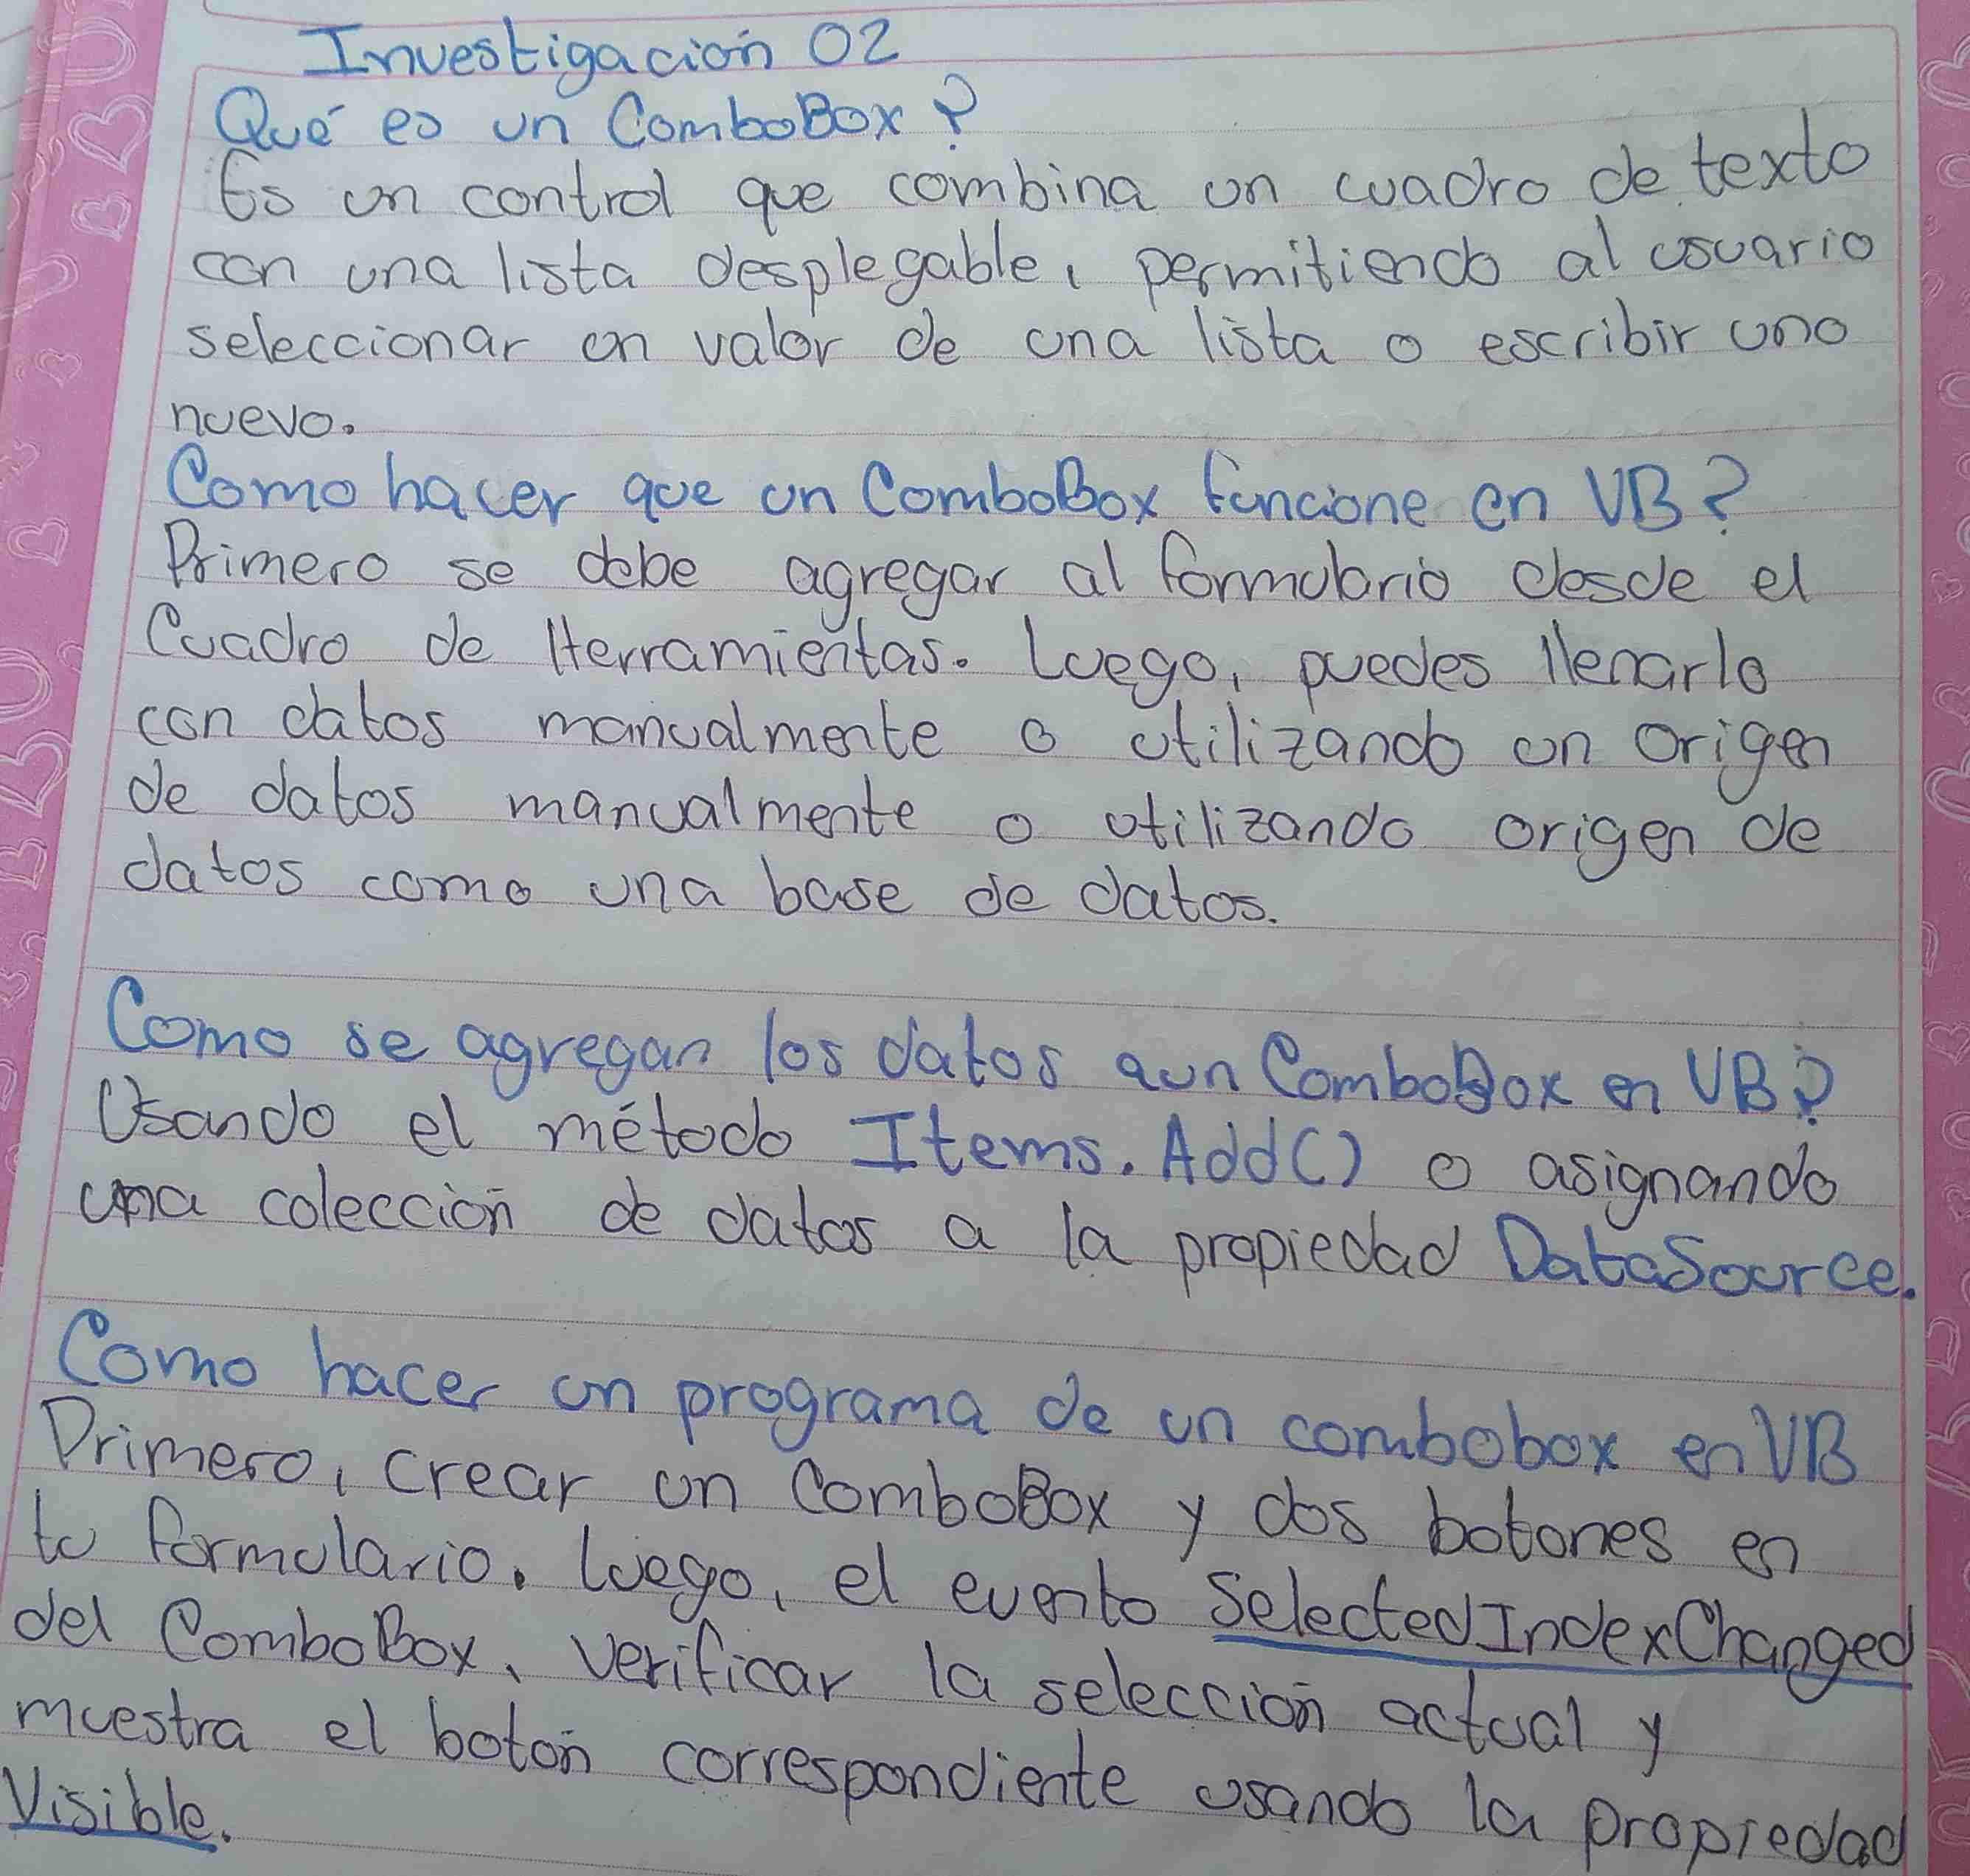 Investigación 02
Qué es un ComboBox?
Es un control que combina un cuadro de texto
con una lista desplegable, permitiendo al usuario
seleccionar un valor de una lista o escribir uno
nuevo.
Como hacer que un ComboBox funcione en VB?
Primero se debe agregar al formulario desde el
Cuadro de Herramientas. Luego, puedes llenarlo
con datos manualmente o utilizando un origen
de datos manualmente o utilizando origen de
datos como una base de datos.
Como se agregan los datos aun ComboBox en VB?
Usando el método Items.Add() o asignando
una colección de datos a la propiedad DataSource.
Como hacer un programa de un combobox en VB
Primero, crear un ComboBox y dos botones en
tu formulario. Luego, el evento SelectedIndexChanged
del ComboBox, verificar la selección actual y
muestra el botón correspondiente usando la propiedad
Visible.